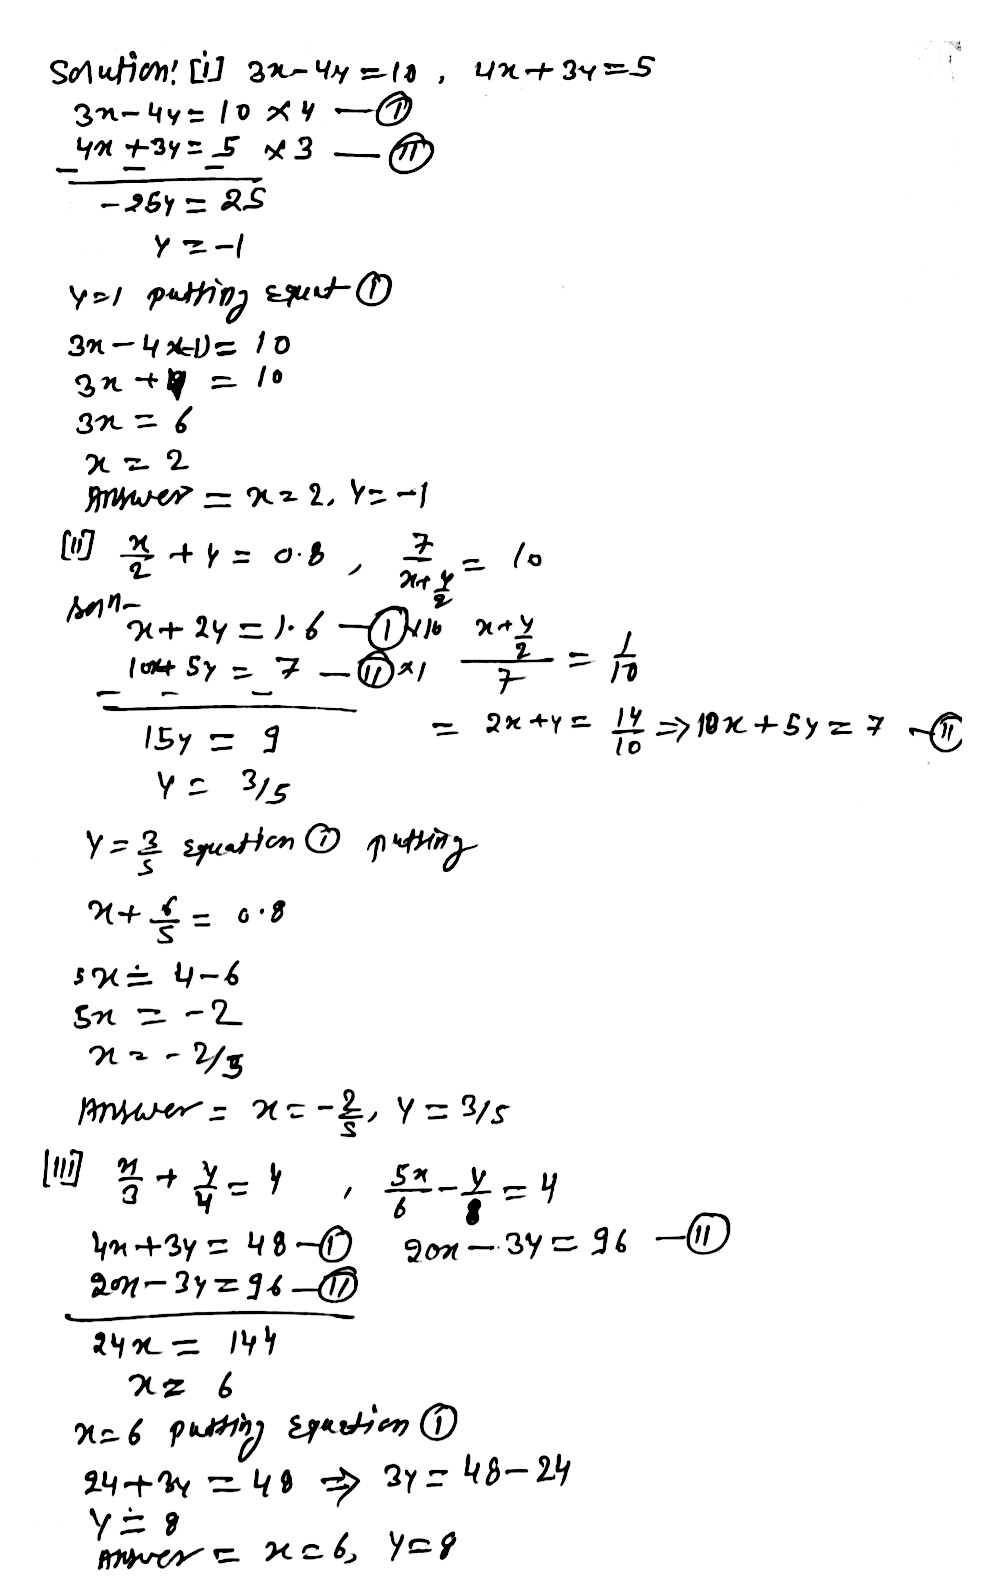 Solution! [i] 3x-4y=10, 4x+3y=5
3x-4y=10 ×4 — (I)
4x+3y=5 ×3 — (II)
- - -
-25y=25
y=-1
y=1 putting equat (I)
3x-4×(-1)=10
3x+4=10
3x=6
x=2
Answer = x=2, y=-1
[ii] x/2 + y = 0.8, 7/(x+y/2) = 10
Soln-
x+2y=1.6 — (I)×10
10x+5y=7 — (II)×1
- - -
(x+y/2)/7 = 1/10
= 2x+y = 14/10 ⇒ 10x+5y=7 — (II)
15y=9
y=3/5
y=3/5 equation (I) putting
x+6/5=0.8
5x=4-6
5x=-2
x=-2/5
Answer = x=-2/5, y=3/5
[iii] x/3 + y/4 = 4, 5x/6 - y/8 = 4
4x+3y=48 — (I) 20x-3y=96 — (II)
20x-3y=96 — (II)
24x=144
x=6
x=6 putting Equation (I)
24+3y=48 ⇒ 3y=48-24
y=8
Answer = x=6, y=8